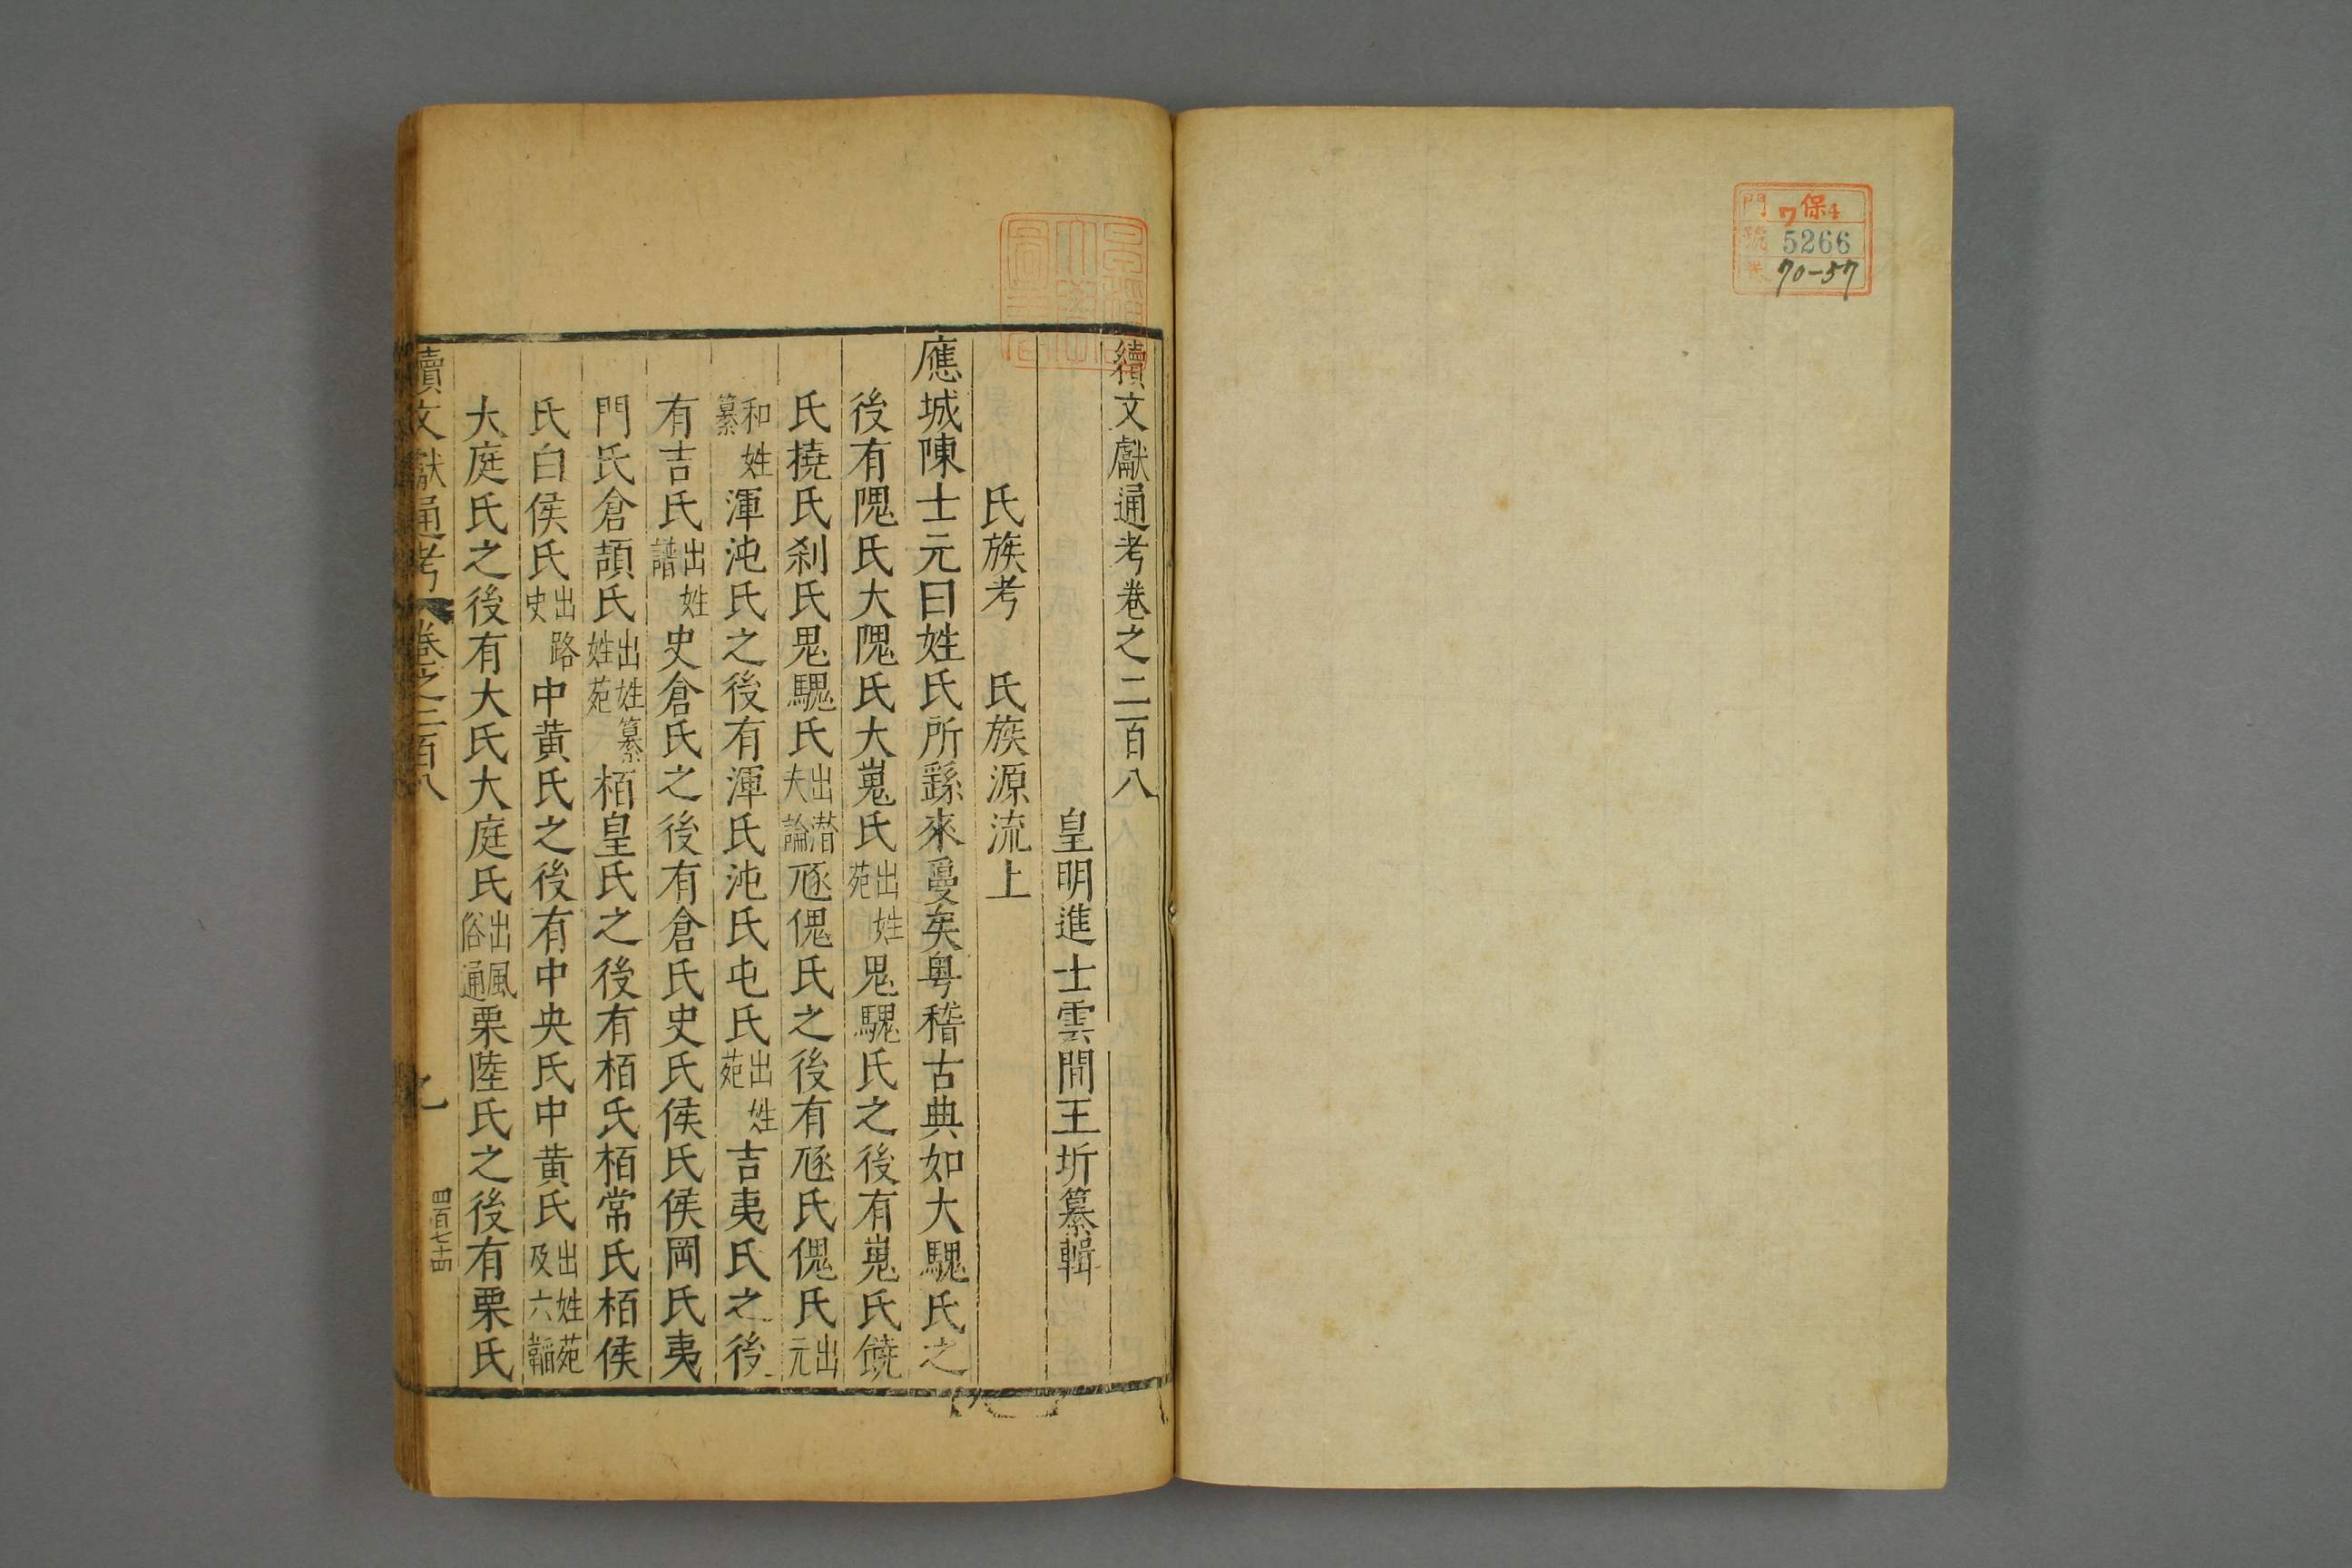 門 7 保4
號 5266
卷 70-57
續文獻通考卷之二百八
皇明進士雲間王圻纂輯
氏族考 氏族源流上
應城陳士元曰姓氏所繇來夐矣粤稽古典如大騩氏之
後有隗氏大隗氏大嵬氏出姓苑鬼騩氏之後有嵬氏饒
氏撓氏刹氏鬼騩氏出潛夫論豗傀氏之後有豗氏傀氏出元
和姓纂渾沌氏之後有渾氏沌氏屯氏出姓苑吉夷氏之後
有吉氏出姓譜史倉氏之後有倉氏史氏侯氏侯岡氏夷
門氏倉頡氏出姓纂姓苑栢皇氏之後有栢氏栢常氏栢侯
氏白侯氏出路史中黃氏之後有中央氏中黃氏出姓苑及六韜
大庭氏之後有大氏大庭氏出風俗通栗陸氏之後有栗氏
續文獻通考 卷之二百八 四百七十四